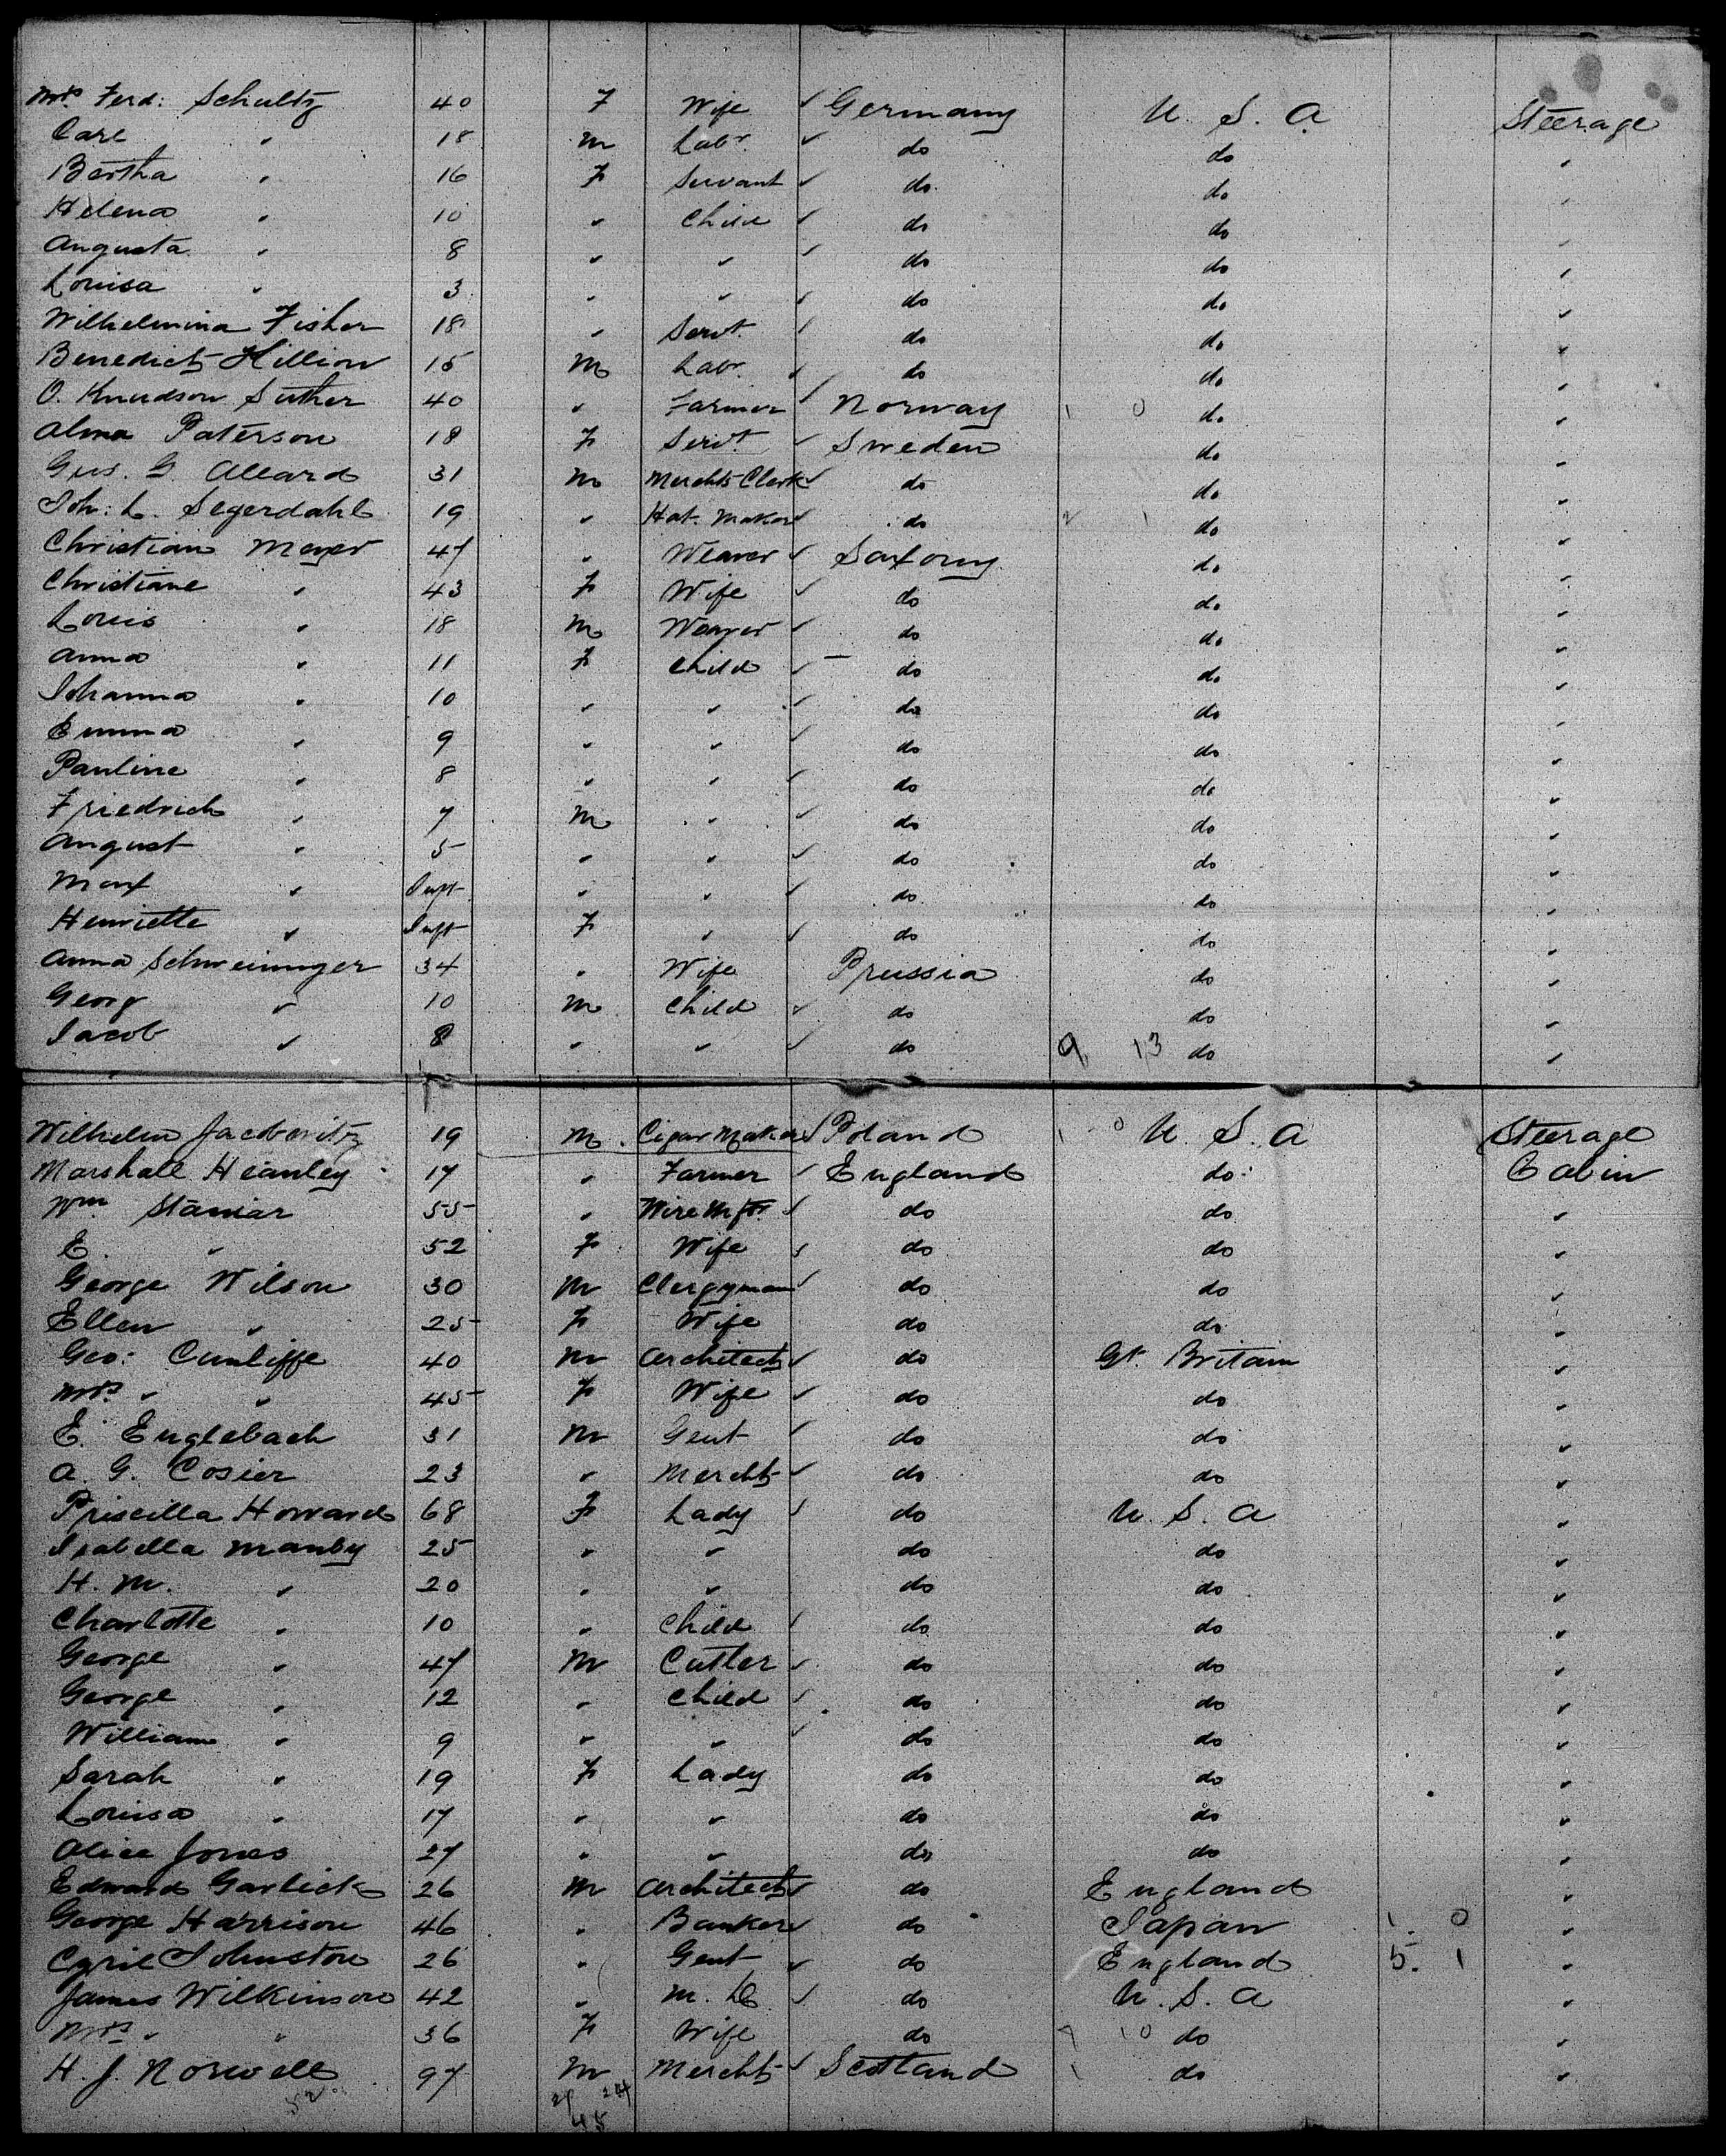 Mrs. Ferd: Schultz 40 F Wife ✓ Germany U. S. A Steerage
Carl " 18 m Labr. ✓ do do "
Bertha " 16 F Servant ✓ do do "
Helena " 10 " Child ✓ do do "
Augusta " 8 " " ✓ do do "
Louisa " 3 " " ✓ do do "
Wilhelmina Fisher 18 " Servt. ✓ do do "
Benedict Hillion 15 m Labr. ✓ do do "
O. Knudson Suther 40 " Farmer ✓ Norway 1 0 do "
Alma Paterson 18 F Servt. ✓ Sweden do "
Gus. G. Allard 31 m Merchts Clerk ✓ do do "
Joh: L. Segerdahl 19 " Hat. Maker ✓ do 2 1 do "
Christian Meyer 47 " Weaver ✓ Saxony do "
Christiane " 43 F Wife ✓ do do "
Louis " 18 m Weaver ✓ do do "
Anna " 11 F Child ✓ do do "
Johanna " 10 " " ✓ do do "
Emma " 9 " " ✓ do do "
Pauline " 8 " " ✓ do do "
Friedrich " 7 m " ✓ do do "
August " 5 " " ✓ do do "
Max " Inft " " ✓ do do "
Henriette " Inft F " ✓ do do "
Anna Schweninger 34 " Wife Prussia do "
Georg " 10 m Child ✓ do do "
Jacob " 8 " " ✓ do 9 13 do "
Wilhelm Jacobovitz 19 m. Cigar Maker ✓ Poland 1 0 U. S. A Steerage
Marshall Heanley 17 " Farmer ✓ England do Cabin
Wm. Staniar 55 " Wire Mftr ✓ do do "
E. " 52 F Wife ✓ do do "
George Wilson 30 m Clergyman ✓ do do "
Ellen " 25 F Wife do do "
Geo: Cunliffe 40 m Architect ✓ do Gt. Britain "
Mrs. " " 45 F Wife ✓ do do "
E. Englebach 31 m Gent ✓ do do "
A. G. Cosier 23 " Mercht ✓ do do "
Priscilla Howard 68 F Lady ✓ do U. S. A "
Isabella Manby 25 " " do do "
H. M. " 20 " " do do "
Charlotte " 10 " Child ✓ do do "
George " 47 m Cutler ✓ do do "
George " 12 " Child ✓ do do "
William " 9 " " ✓ do do "
Sarah " 19 F Lady do do "
Louisa " 17 " " do do "
Alice Jones 27 " " do do "
Edward Garlick 26 m Architect ✓ do England "
George Harrison 46 " Banker ✓ do Japan 1 0 "
Cyril Johnston 26 " Gent ✓ do England 5. 1 "
James Wilkinson 42 " ✓ do U. S. A "
Mrs " " 36 F Wife do 10 do "
H. J. Norwell 97 m Mercht ✓ Scotland 1 do "
52 24
45